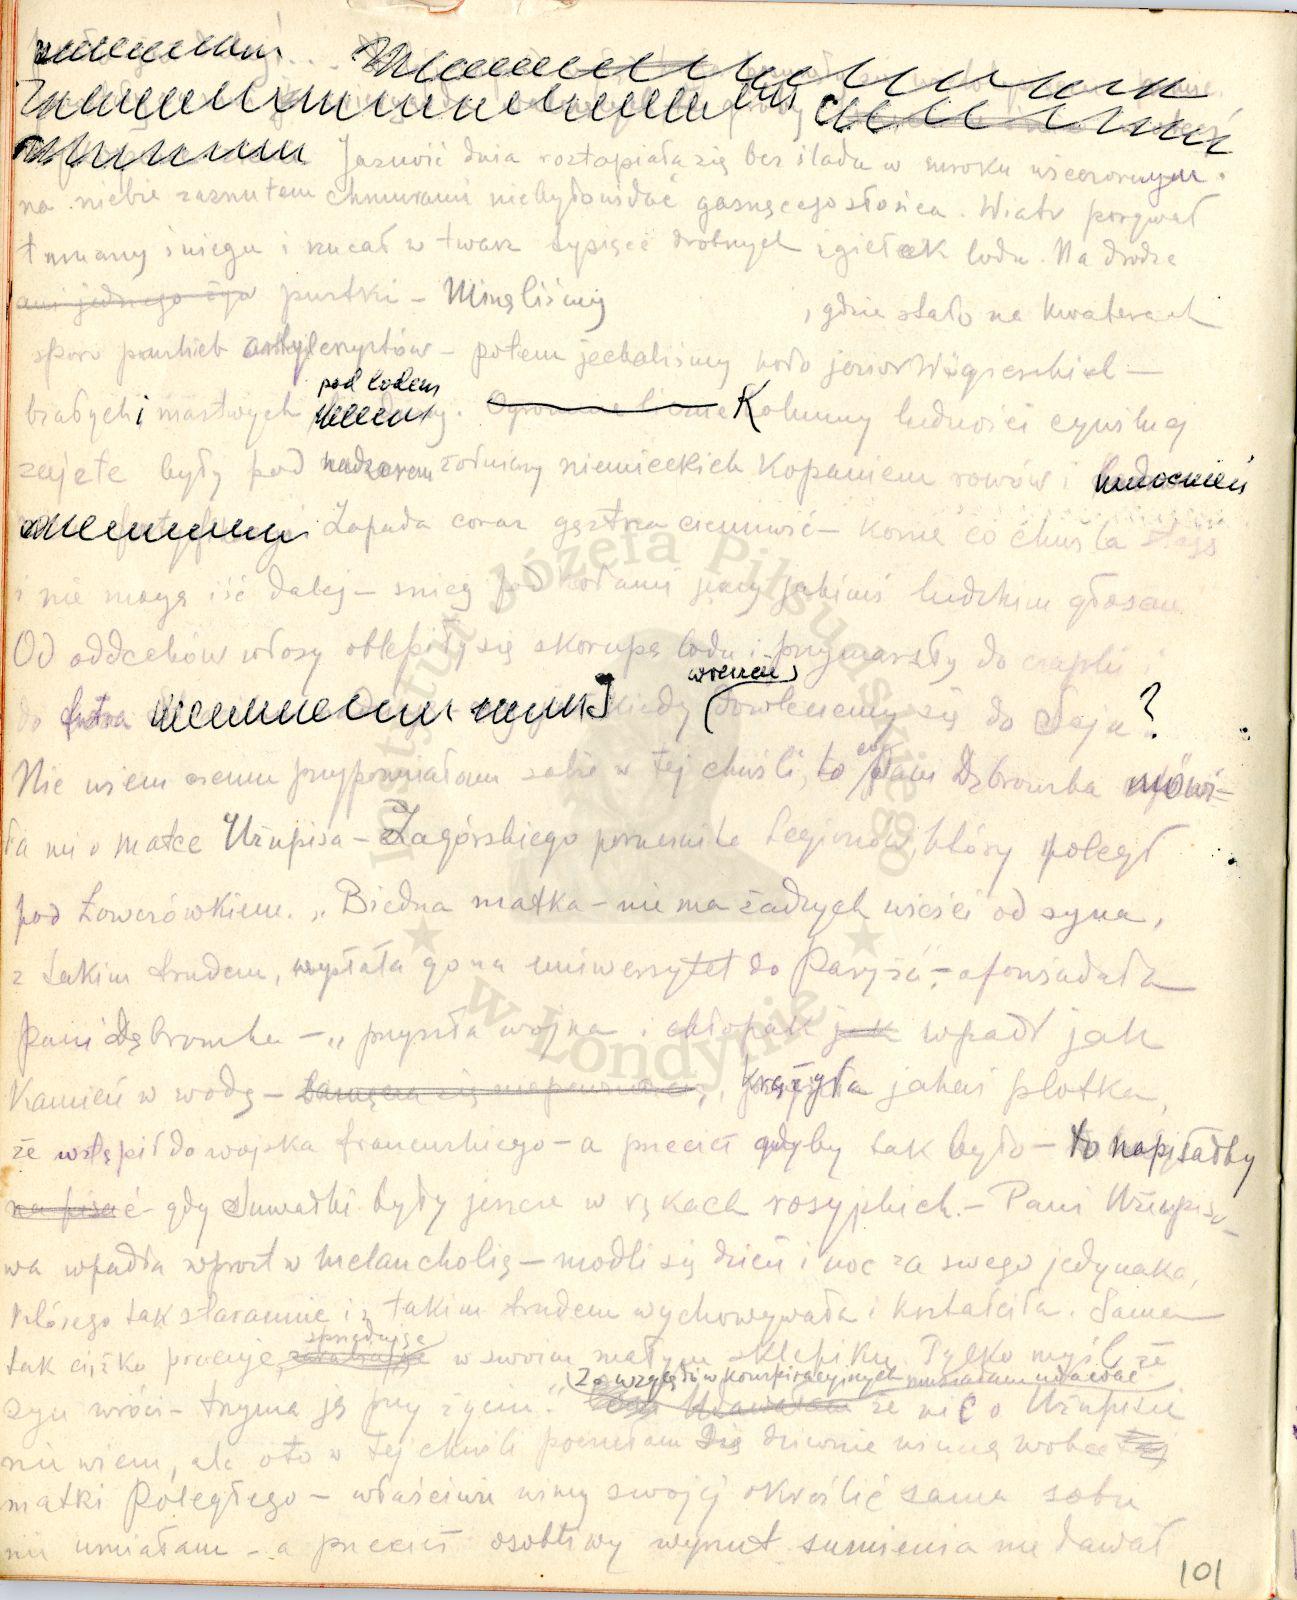 Jasność dnia roztapiała się bez śladu w mroku wieczornym.
na niebie zasnutem chmurami niebyło widać gasnącego słońca. Wiatr porywał
tumany śniegu i rzucał w twarz tysiące drobnych igiełek lodu. Na drodze
ani jednego żyw pustki – Minęliśmy , gdzie stało na kwaterach
sporo pruskich artylerzystów – potem jechaliśmy koło jezior Wigierskich –
białych i martwych pod lodem. Kolumny ludności cywilnej
zajęte były pod nadzorem żołnierzy niemieckich kopaniem rowów i umocnień
Zapada coraz gęstsza ciemność – konie co chwila stają
i nie mogą iść dalej – śnieg pod kołami jęczy jakimś ludzkim głosem.
Od oddechów włosy oblepiły się skorupą lodu i przymarzły do czapki i
do futra kiedy wreszcie dowleczemy się do Sejn?
Nie wiem czemu przypomniałam sobie w tej chwili, co pani Dąbrowska mówi-
ła mi o matce Użupisa – Zagórskiego porucznika Legionów, który poległ
pod Łowczówkiem. „Biedna matka – nie ma żadnych wieści od syna,
z takim trudem, wysłała go na uniwersytet do Paryża", – opowiadała
pani Dąbrowska – „przyszła wojna i chłopak jak wpadł jak
kamień w wodę – krążyła jakaś plotka,
że wstąpił do wojska francuskiego – a przecież gdyby tak było – to napisałby
na pisać – gdy Suwałki były jeszcze w rękach rosyjskich. – Pani Użupiso-
wa wpadła wprost w melancholię – modli się dzień i noc za swego jedynaka,
którego tak starannie i z takim trudem wychowywała i kształciła. Sama
tak ciężko pracuje, sprzedając w swoim małym sklepiku. Tylko myśl że
syn wróci – trzyma ją przy życiu." Ze względów konspiracyjnych musiałam udawać że nic o Użupisie
nie wiem, ale oto w tej chwili poczułam się dziwnie winną wobec tej
matki Poległego – właściwie winy swojej określić sama sobie
nie umiałam – a przecież osobliwy wyrzut sumienia nie dawał
101
Instytut Józefa Piłsudskiego
w Londynie